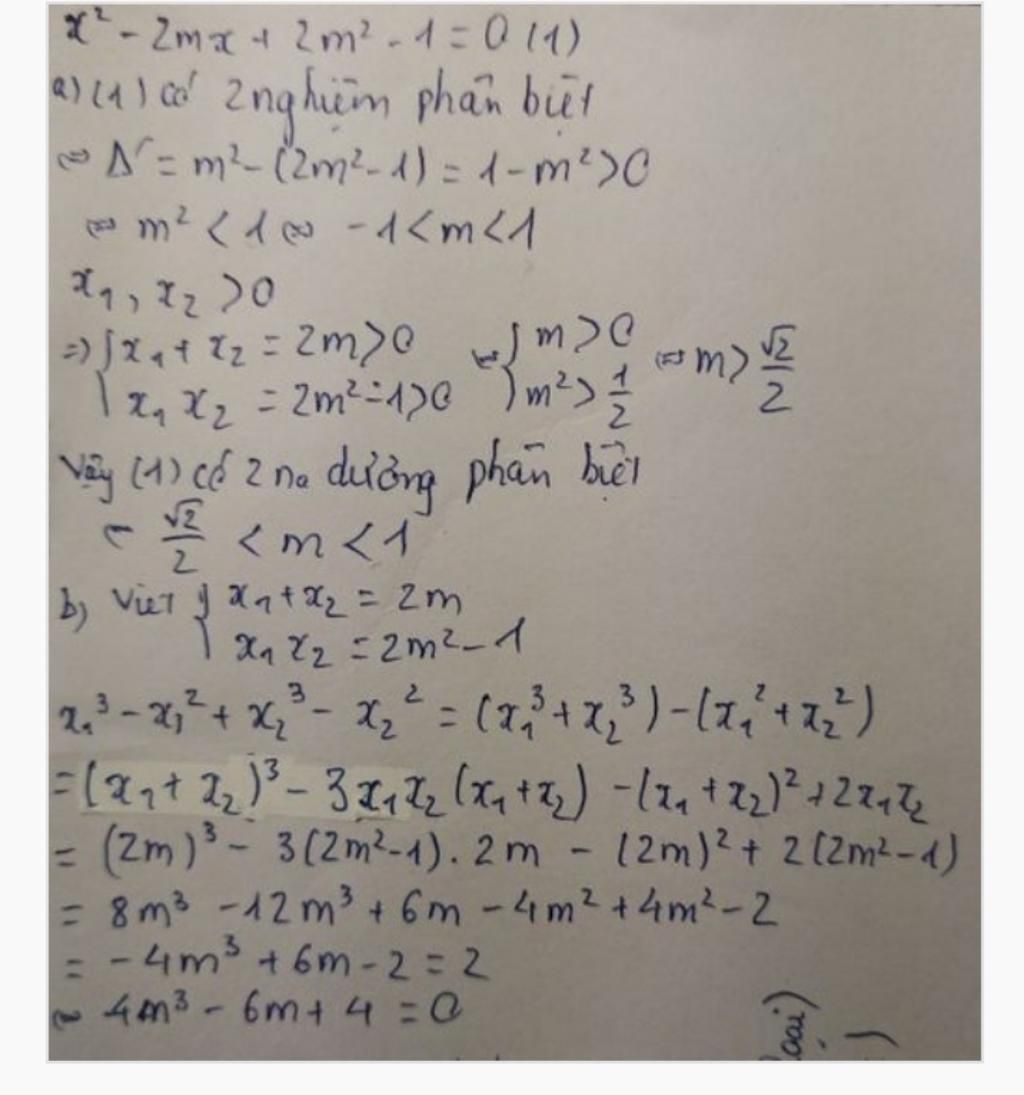 x² - 2mx + 2m² - 1 = 0 (1)
a) (1) có 2 nghiệm phân biệt
⇔ Δ' = m² - (2m² - 1) = 1 - m² > 0
⇔ m² < 1 ⇔ -1 < m < 1
x₁, x₂ > 0
⇒ { x₁ + x₂ = 2m > 0 ⇔ { m > 0 ⇔ m > √2/2
{ x₁ x₂ = 2m² - 1 > 0 { m² > 1/2
Vậy (1) có 2 no dương phân biệt
⇔ √2/2 < m < 1
b) Viet { x₁ + x₂ = 2m
{ x₁ x₂ = 2m² - 1
x₁³ - x₁² + x₂³ - x₂² = (x₁³ + x₂³) - (x₁² + x₂²)
= (x₁ + x₂)³ - 3x₁x₂ (x₁ + x₂) - (x₁ + x₂)² + 2x₁x₂
= (2m)³ - 3(2m² - 1). 2m - (2m)² + 2(2m² - 1)
= 8m³ - 12m³ + 6m - 4m² + 4m² - 2
= -4m³ + 6m - 2 = 2
⇔ 4m³ - 6m + 4 = 0